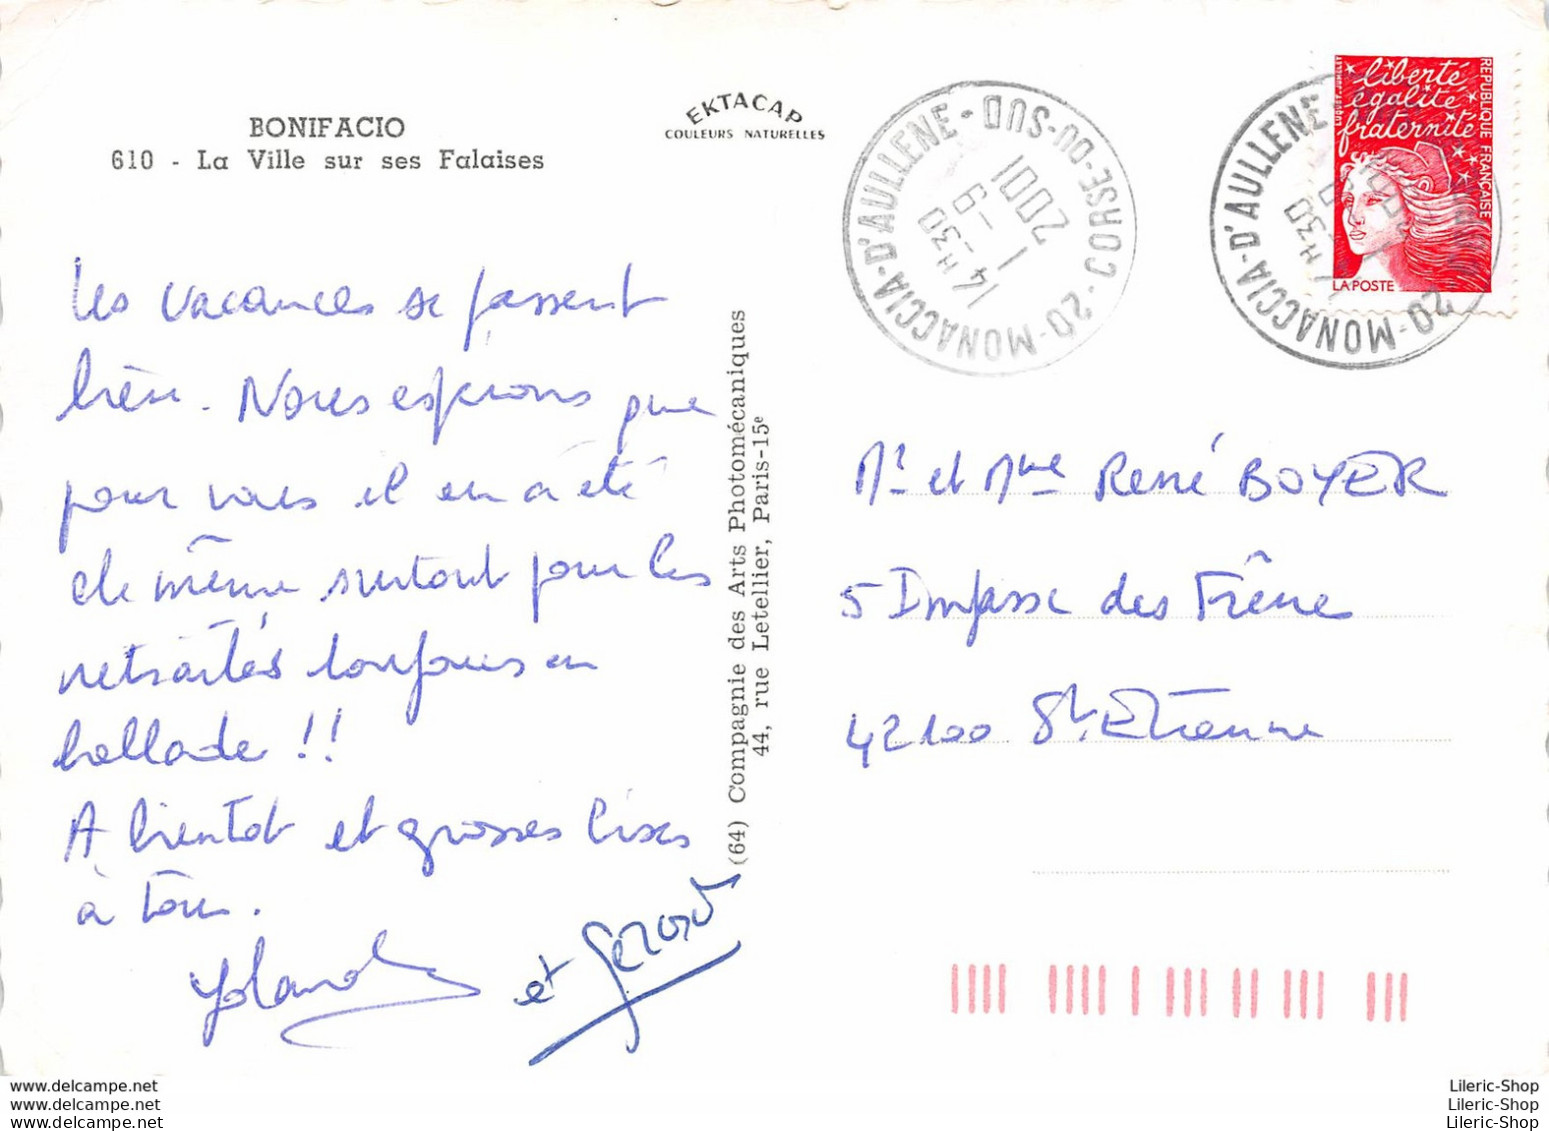 BONIFACIO
610 - La Ville sur ses Falaises
EKTACAP
COULEURS NATURELLES
Les vacances se passent
bien. Nous espérons que
pour vous il en a été
de même surtout pour les
retraités toujours en
ballade !!
A bientot et grosses bises
à tous.
Yolande
et Gérard
(64) Compagnie des Arts Photomécaniques
44, rue Letellier, Paris-15e
20 - MONACCIA-D'AULLENE - CORSE-DU-SUD
14 H 30
1 - 9
2001
20 - MONACCIA-D'AULLENE
liberté
égalité
fraternité
REPUBLIQUE FRANÇAISE
LA POSTE
Mr et Mme René BOYER
5 Impasse des Frêne
42100 St. Etienne
www.delcampe.net
www.delcampe.net
www.delcampe.net
Lileric-Shop
Lileric-Shop
Lileric-Shop